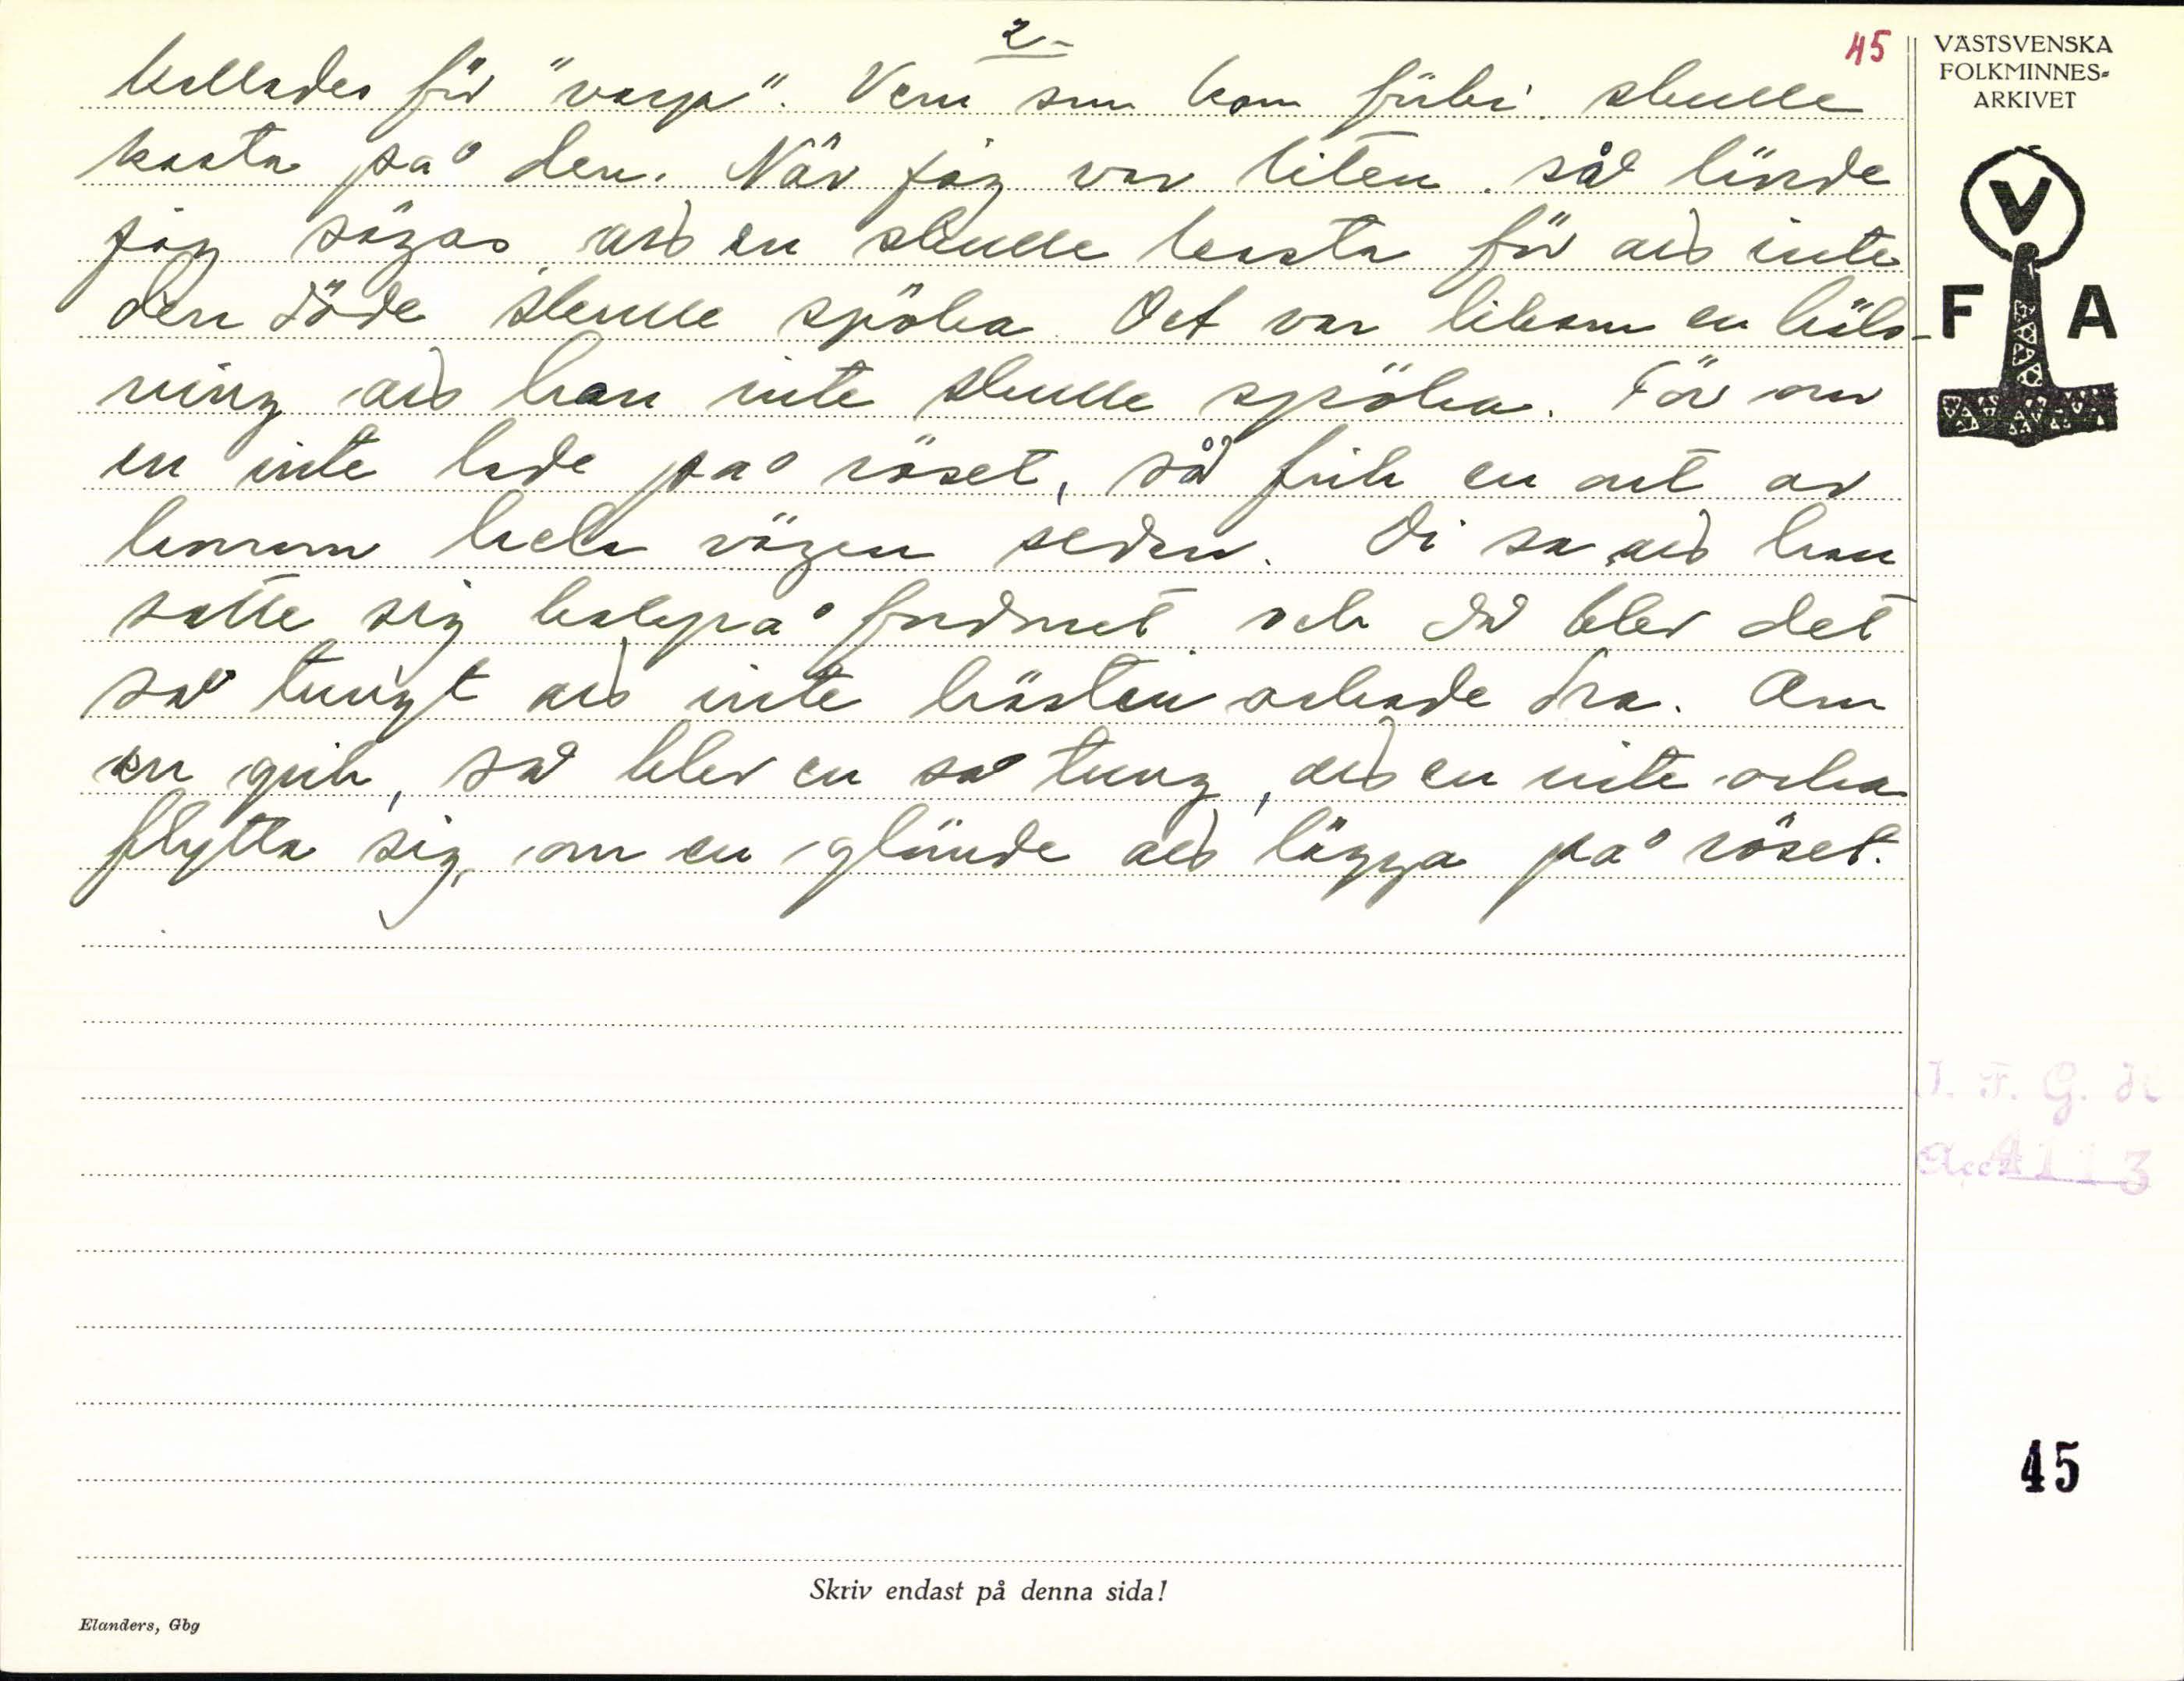 2-
45
kallades för "varp". Vem som kom förbi skulle
kasta på den. När jag var liten så hörde
jag sägas att en skulle kasta för att inte
den döde skulle spöka. Det var liksom en häls-
ning att han inte skulle spöka. För om
en inte lade på röset, så fick en ont av
honom hela vägen sedan. Di sa att han
satte sig bakpå fordonet och då blev det
så tungt att inte hästen orkade dra. Om
en gick, så blev en så tung, att en inte orka
flytta sig, om en glömde att lägga på röset.
VÄSTSVENSKA
FOLKMINNES-
ARKIVET
V
F A
I. F. G. H
Acc 4113
45
Skriv endast på denna sida!
Elanders, Gbg